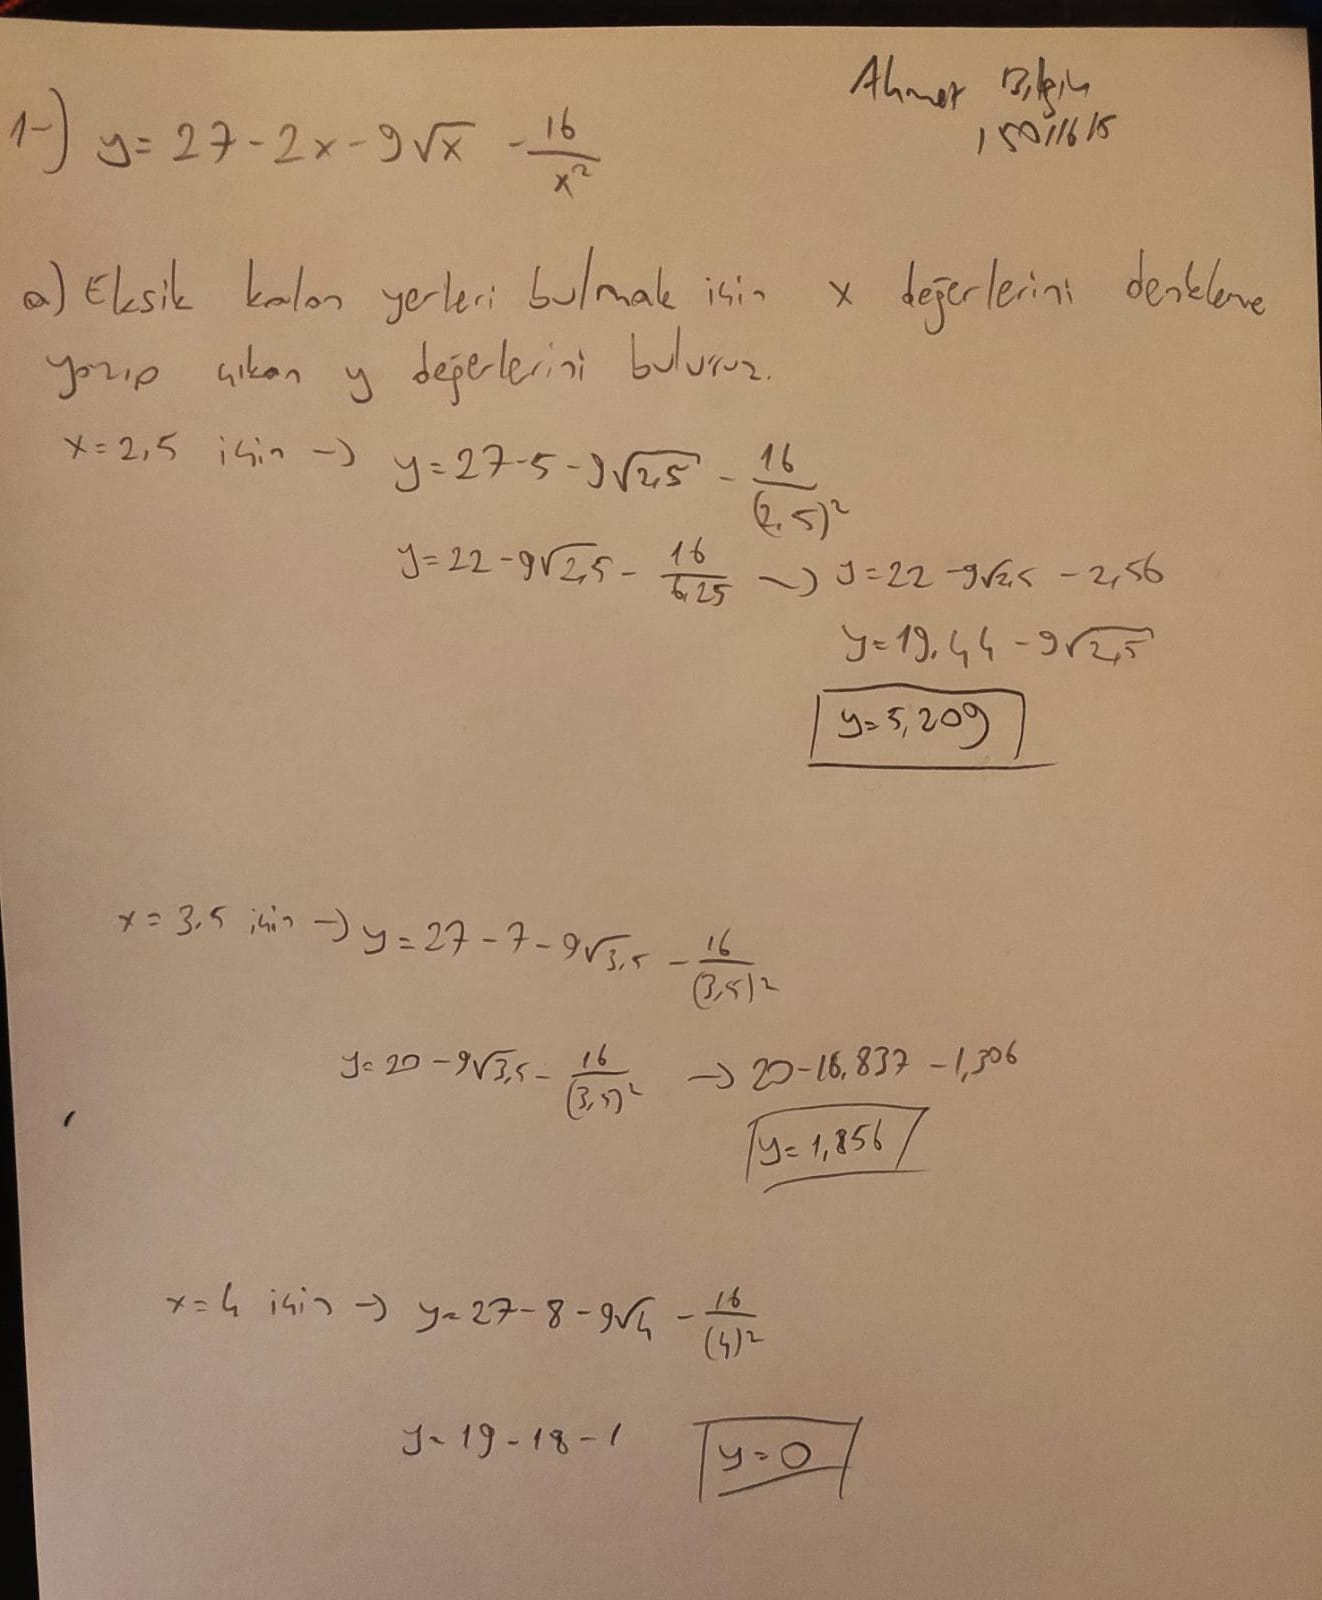 Ahmet Bilgin
1-) y = 27 - 2x - 9√x - 16/x²
a) Eksik kalan yerleri bulmak için x değerlerini denkleme
yazıp çıkan y değerlerini buluruz.
x = 2,5 için → y = 27 - 5 - 9√2,5 - 16/(2,5)²
y = 22 - 9√2,5 - 16/6,25 → y = 22 - 9√2,5 - 2,56
y = 19,44 - 9√2,5
y = 5,209
x = 3,5 için → y = 27 - 7 - 9√3,5 - 16/(3,5)²
y = 20 - 9√3,5 - 16/(3,5)² → 20 - 16,837 - 1,306
y = 1,856
x = 4 için → y = 27 - 8 - 9√4 - 16/(4)²
y = 19 - 18 - 1 y = 0